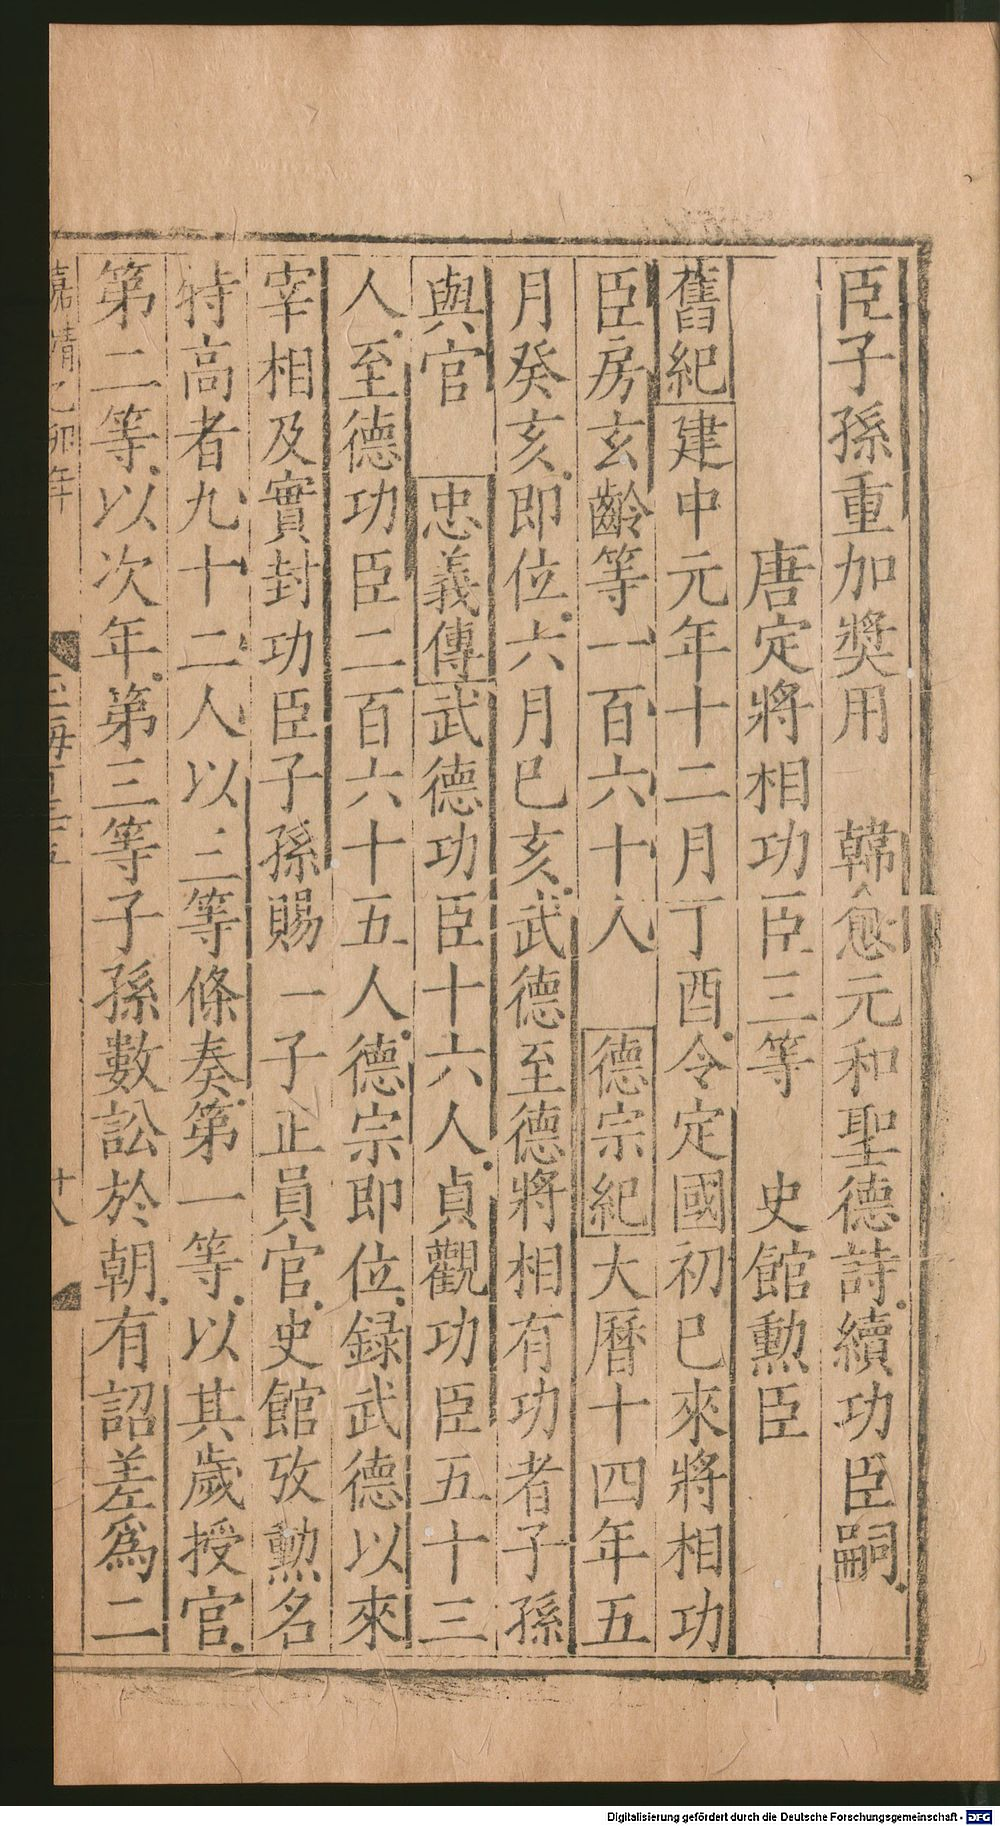 臣子孫重加奬用　韓愈元和聖德詩續功臣嗣
唐定將相功臣三等　史館勲臣
舊紀建中元年十二月丁酉令定國初巳來將相功
臣房玄齡等一百六十人　德宗紀大曆十四年五
月癸亥即位六月巳亥武德至德將相有功者子孫
與官　忠義傳武德功臣十六人貞觀功臣五十三
人至德功臣二百六十五人德宗即位録武德以來
宰相及實封功臣子孫賜一子正員官史館攷勲名
特高者九十二人以三等條奏第一等以其歲授官
第二等以次年第三等子孫數訟於朝有詔差爲二
嘉靖乙卯年　玉海百三十五　十八
Digitalisierung gefördert durch die Deutsche Forschungsgemeinschaft - DFG